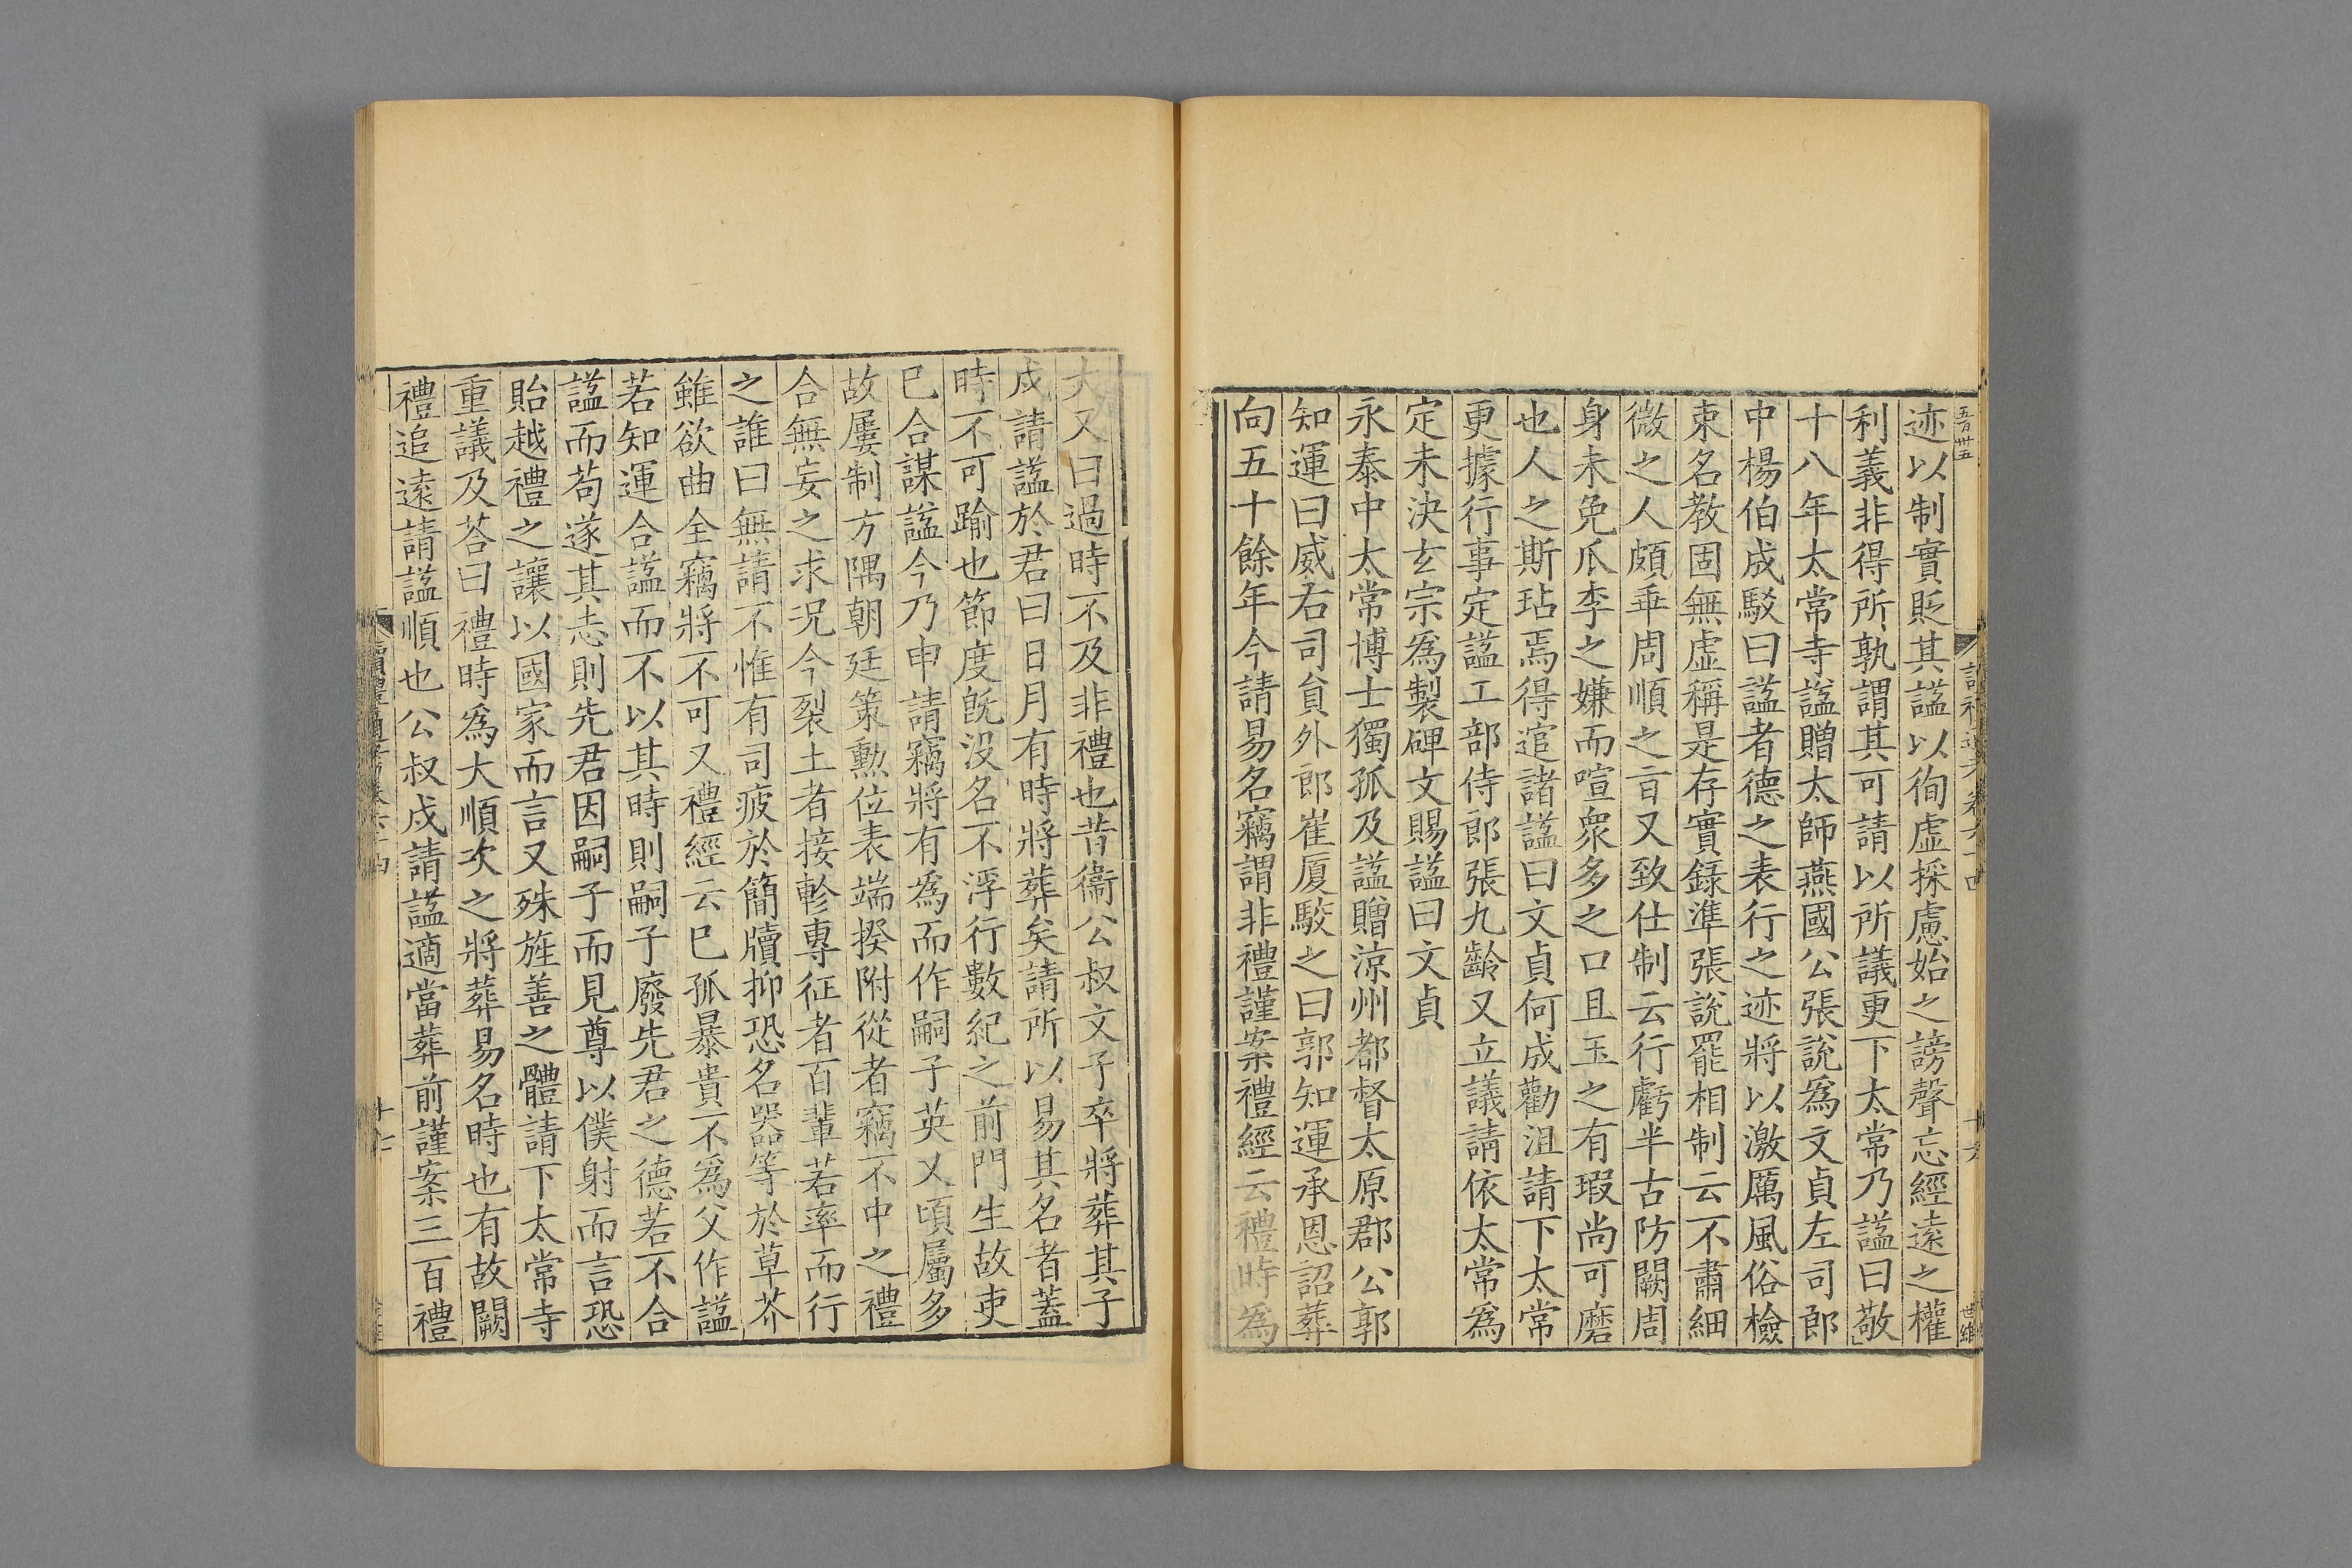 迹以制實貶其諡以徇虛採慮始之謗聲忘經遠之權
利義非得所孰謂其可請以所議更下太常乃諡曰敬
十八年太常寺諡贈太師燕國公張說為文貞左司郎
中楊伯成駁曰諡者德之表行之迹將以激厲風俗檢
束名教固無虛稱是存實錄準張說罷相制云不肅細
微之人頗乖周順之旨又致仕制云行虧半古防闕周
身未免瓜李之嫌而喧衆多之口且玉之有瑕尚可磨
也人之斯玷焉得逭諸諡曰文貞何成勸沮請下太常
更據行事定諡工部侍郎張九齡又立議請依太常為
定未決玄宗為製碑文賜諡曰文貞
永泰中太常博士獨孤及諡贈涼州都督太原郡公郭
知運曰威右司貟外郎崔厦駮之曰郭知運承恩詔葬
向五十餘年今請易名竊謂非禮謹案禮經云禮時為
大又曰過時不及非禮也昔衞公叔文子卒將葬其子
戍請諡於君曰日月有時將葬矣請所以易其名者蓋
時不可踰也節度旣沒名不浮行數紀之前門生故吏
巳合謀諡今乃申請竊將有為而作嗣子英乂頃屬多
故屢制方隅朝廷策勲位表端揆附從者竊不中之禮
合無妄之求況今裂土者接軫專征者百輩若率而行
之誰曰無請不惟有司疲於簡牘抑恐名器等於草芥
雖欲曲全竊將不可又禮經云巳孤暴貴不為父作諡
若知運合諡而不以其時則嗣子廢先君之德若不合
諡而苟遂其志則先君因嗣子而見尊以僕射而言恐
貽越禮之讓以國家而言又殊旌善之體請下太常寺
重議及荅曰禮時為大順次之將葬易名時也有故闕
禮追遠請諡順也公叔戍請諡適當葬前謹案三百禮